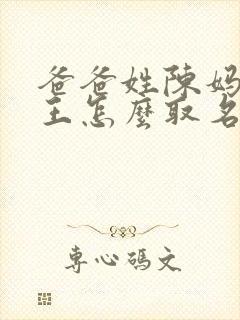 爸爸姓陳妈
王怎麼取名
專心碼文